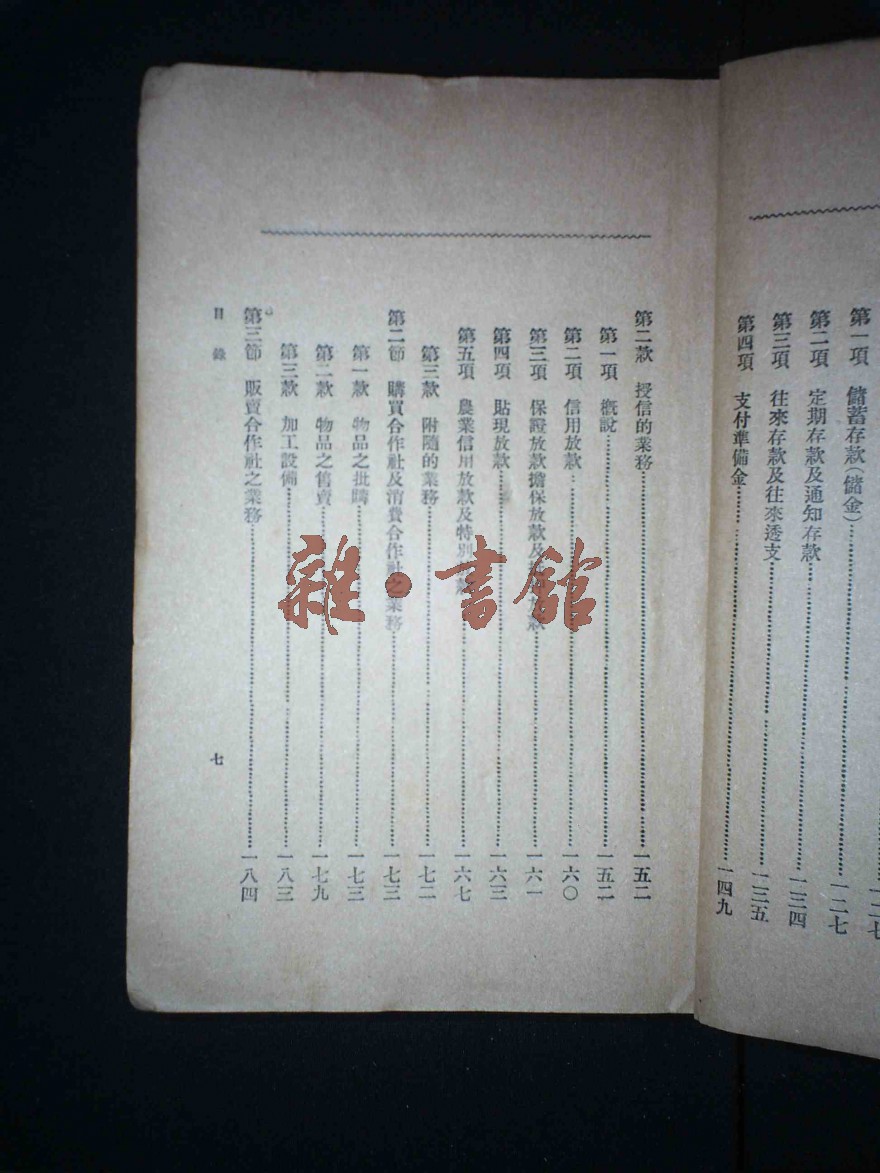 第一項　儲蓄存款(儲金)……一二七
第二項　定期存款及通知存款……一三四
第三項　往來存款及往來透支……一三五
第四項　支付準備金……一四九
第二款　授信的業務……一五二
第一項　概說……一五二
第二項　信用放款……一六〇
第三項　保證放款擔保放款及放款……一六一
第四項　貼現放款……一六三
第五項　農業信用放款及特別……一六七
第三款　附隨的業務……一七二
第二節　購買合作社及消費合作社之業務……一七三
第一款　物品之批購……一七三
第二款　物品之售賣……一七九
第三款　加工設備……一八三
第三節　販賣合作社之業務……一八四
目錄
七
雜·書館